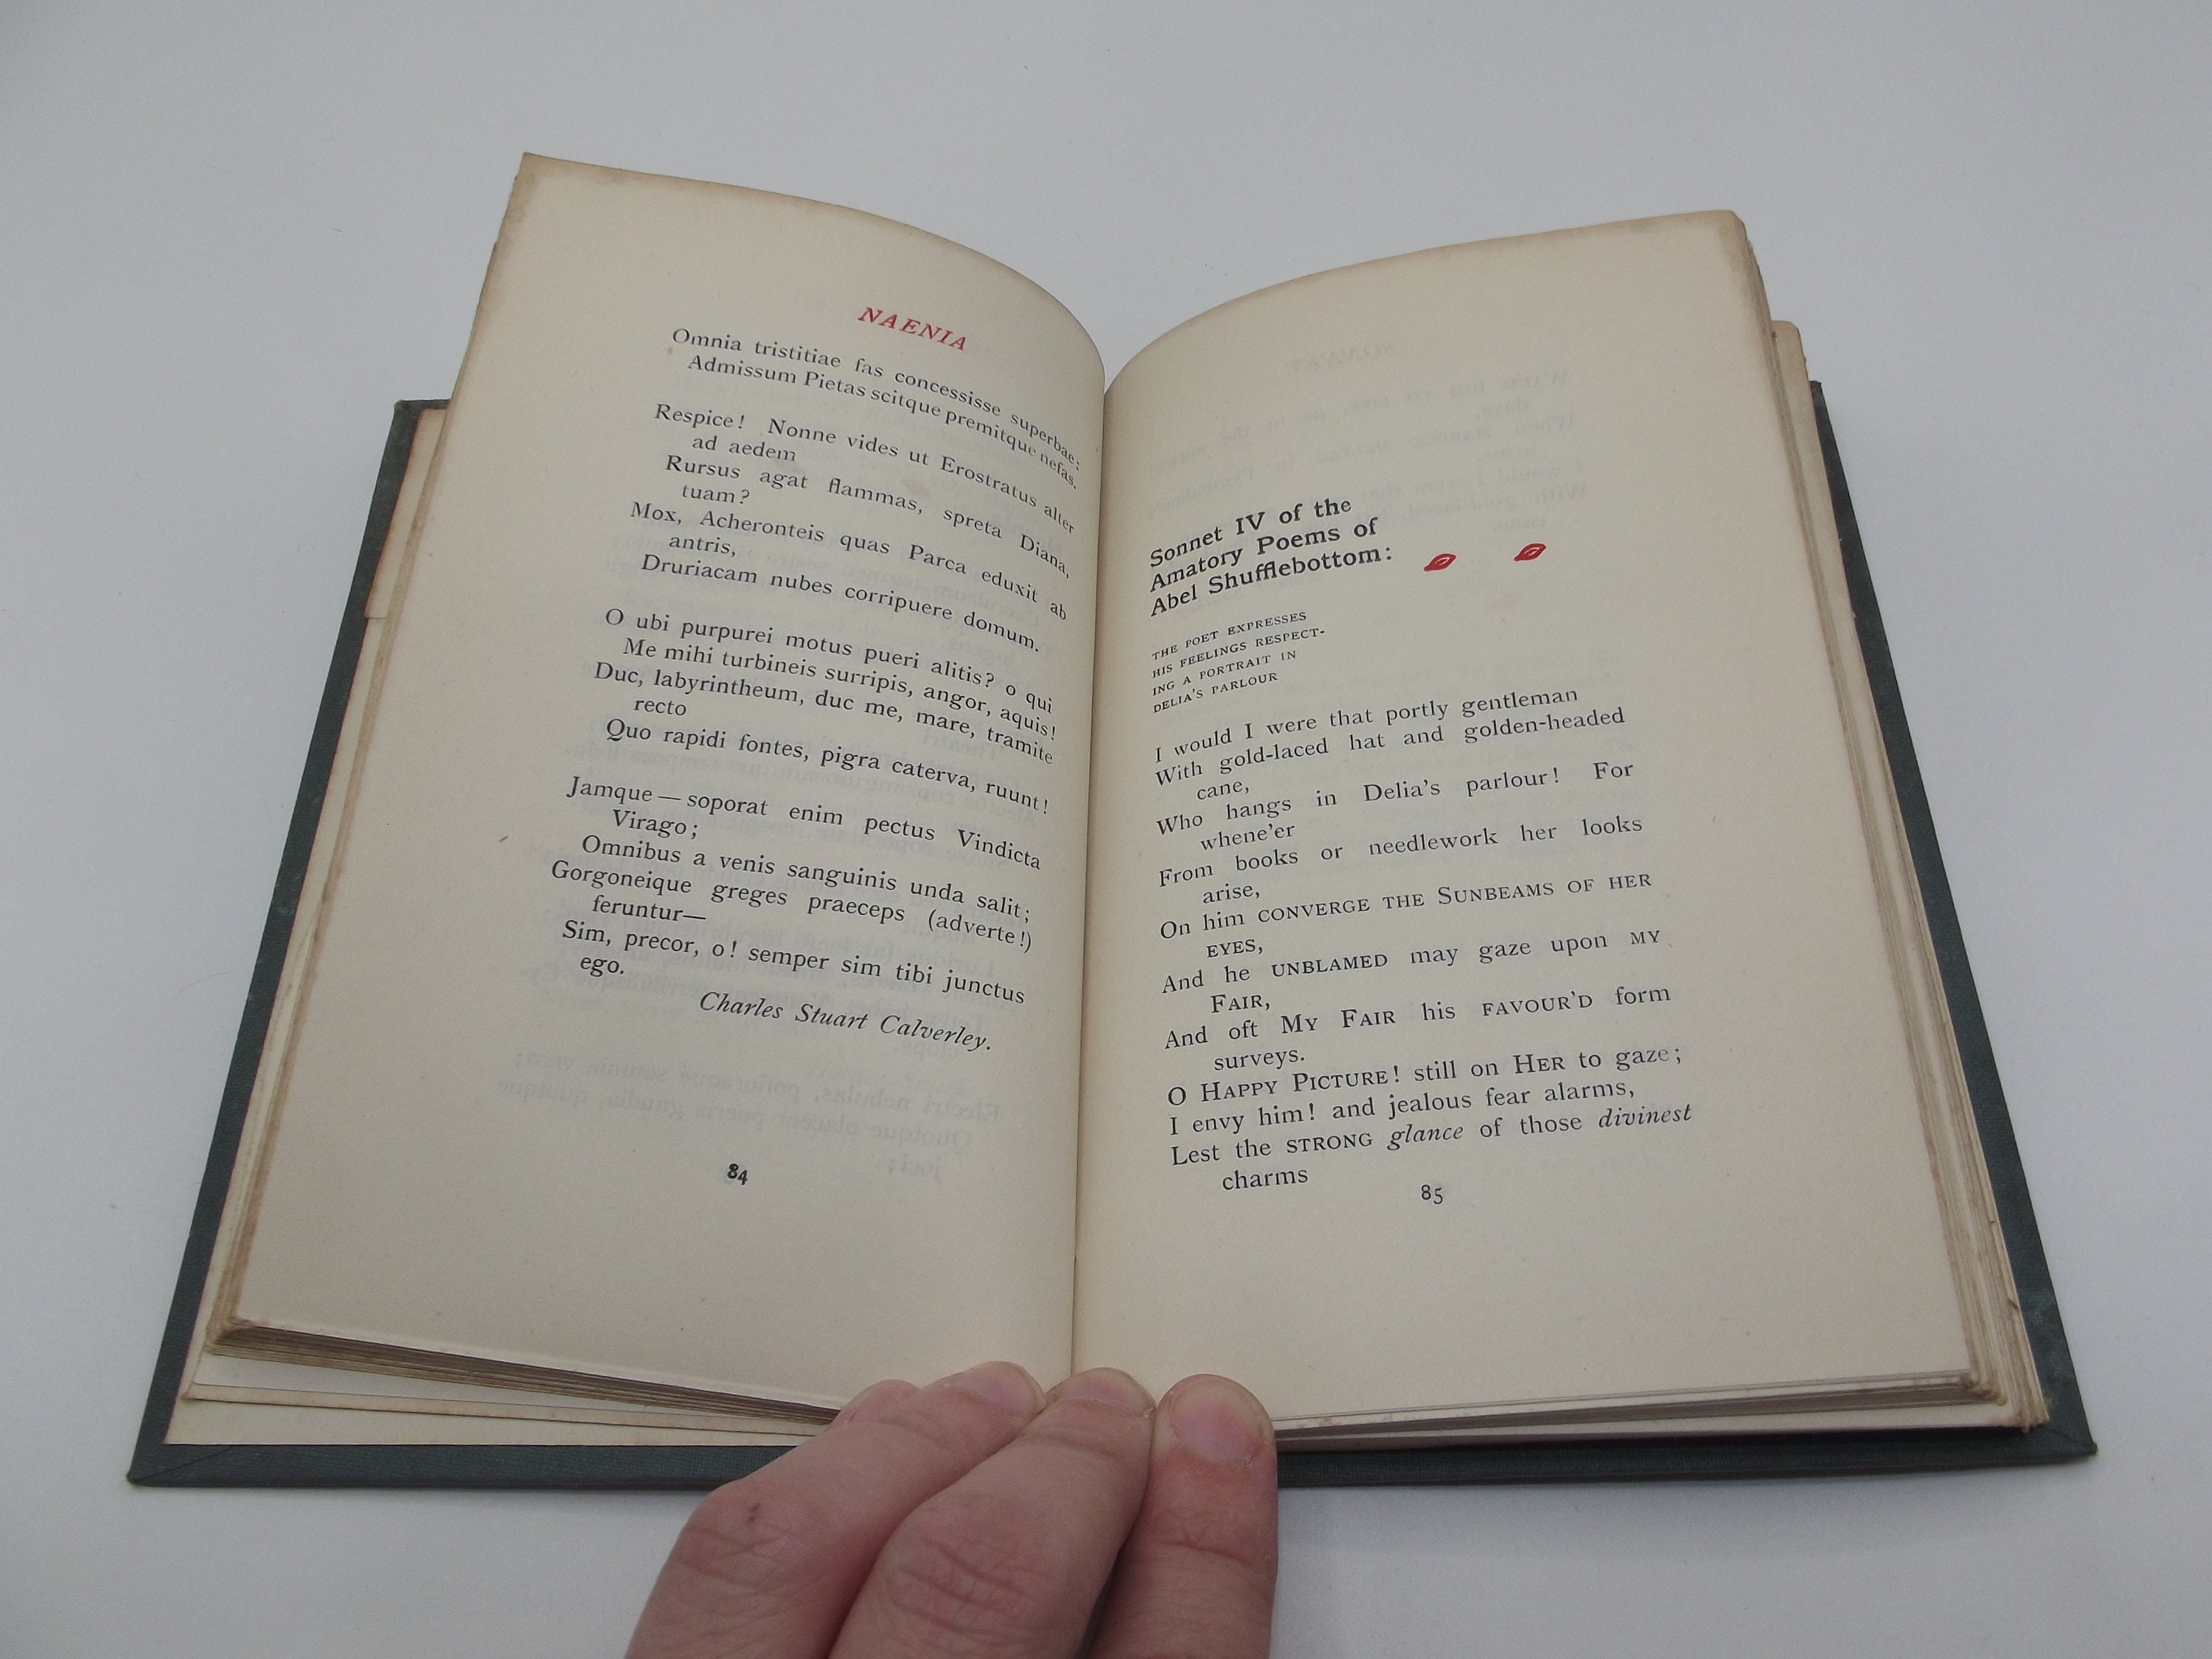 NAENIA
Omnia tristitiae fas concessisse superbae;
Admissum Pietas scitque premitque nefas.
Respice! Nonne vides ut Erostratus alter
ad aedem
Rursus agat flammas, spreta Diana,
tuam?
Mox, Acheronteis quas Parca eduxit ab
antris,
Druriacam nubes corripuere domum.
O ubi purpurei motus pueri alitis? o qui
Me mihi turbineis surripis, angor, aquis!
Duc, labyrintheum, duc me, mare, tramite
recto
Quo rapidi fontes, pigra caterva, ruunt!
Jamque—soporat enim pectus Vindicta
Virago;
Omnibus a venis sanguinis unda salit;
Gorgoneique greges praeceps (adverte!)
feruntur—
Sim, precor, o! semper sim tibi junctus
ego.
Charles Stuart Calverley.
84
Sonnet IV of the
Amatory Poems of
Abel Shufflebottom:
THE POET EXPRESSES
HIS FEELINGS RESPECT-
ING A PORTRAIT IN
DELIA'S PARLOUR
I would I were that portly gentleman
With gold-laced hat and golden-headed
cane,
Who hangs in Delia's parlour! For
whene'er
From books or needlework her looks
arise,
On him CONVERGE THE SUNBEAMS OF HER
EYES,
And he UNBLAMED may gaze upon MY
FAIR,
And oft MY FAIR his FAVOUR'D form
surveys.
O HAPPY PICTURE! still on HER to gaze;
I envy him! and jealous fear alarms,
Lest the STRONG glance of those divinest
charms
85